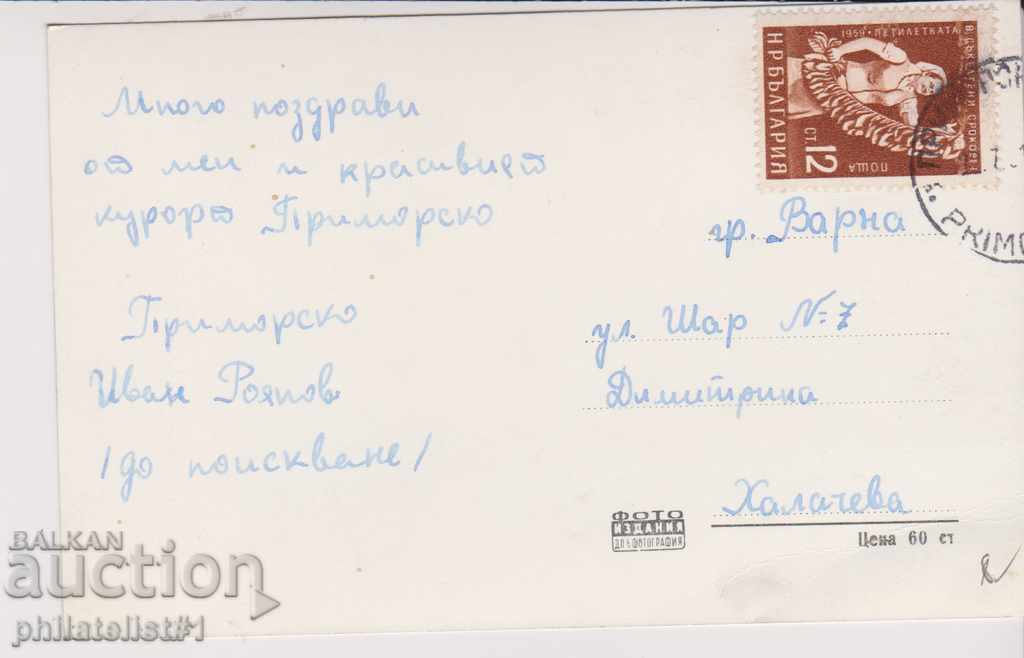 Много поздрави
от мен и красивиет
курорт Приморско
Приморско
Иван
/до поискване/
НР БЪЛГАРИЯ
1959 • ПЕТИЛЕТКАТА
В СЪКРАТЕНИ СРОКОВЕ
ПОЩА
12 СТ
PRIMO
гр. Варна
ул. Шар № 7
Димитрина
Халачева
ФОТО
ИЗДАНИЯ
ДП ФОТОГРАФИЯ
Цена 60 ст
BALKAN
auction
philatelist#1